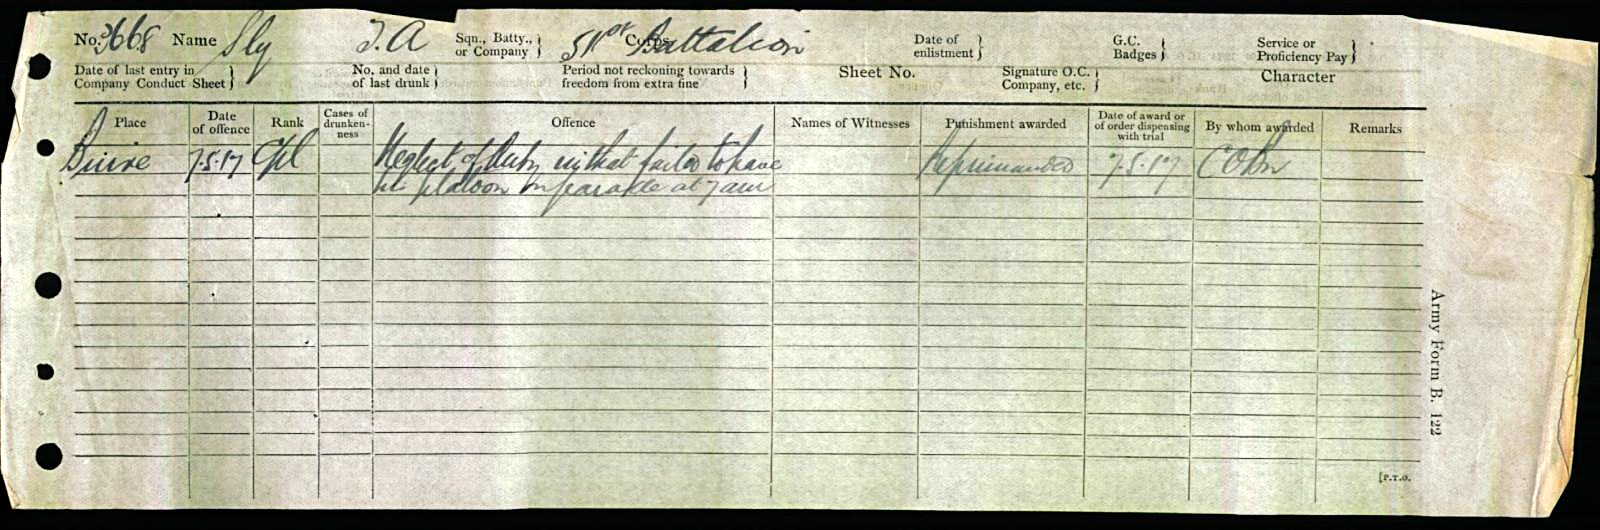 No. 3668 Name Sly J.A Sqn., Batty., or Company } 51st Corps Battalion Date of enlistment } G.C. Badges } Service or Proficiency Pay }
Date of last entry in Company Conduct Sheet } No. and date of last drunk } Period not reckoning towards freedom from extra fine } Sheet No. Signature O.C. Company, etc. } Character
Place Date of offence Rank Cases of drunken-ness Offence Names of Witnesses Punishment awarded Date of award or of order dispensing with trial By whom awarded Remarks
Buire 7.5.17 Cpl Neglect of Duty in that failed to have Reprimanded 7.5.17
his platoon on parade at 7 am
Army Form B. 122
[P.T.O.